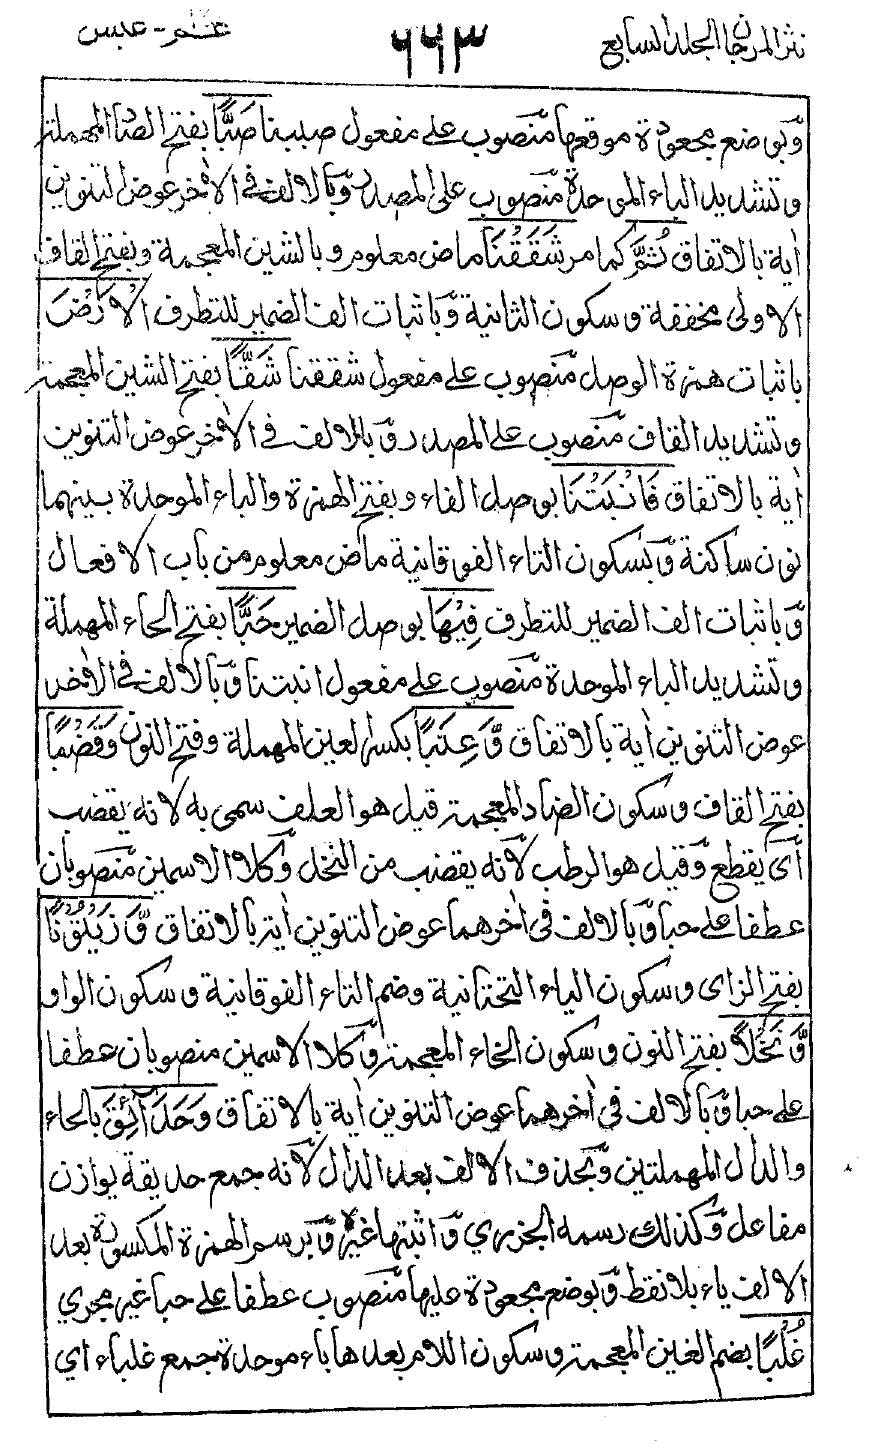 نثر المرجان الجلد السابع ٦٦٣ عم - عبس
وّبوضع مجعودة موقعها منّصوب على مفعول صببنا صَبًّا بفتح الصاد المهملة
وتشديد الباء الموحدة منّصوب على المصدر وّبالالف فى الاٰخر عوض التنوين
اٰية بالاتفاق ثُمَّ كما مر شَقَقْنَا ماض معلوم وبالشين المعجمة وبفتح القاف
الاولى مخففة وسكون الثانية وّباثبات الف الضمير للتطرف الْاَرْضَ
باثبات همزة الوصل منّصوب على مفعول شققنا شَقًّا بفتح الشين المعجمة
وتشديد القاف منّصوب على المصدر وّبالالف فى الاٰخر عوض التنوين
اٰية بالاتفاق فَاَنْۢبَتْنَا بوصل الفاء وبفتح الهمزة والباء الموحدة بينهما
نون ساكنة وّبسكون التاء الفوقانية ماض معلوم من باب الافعال
وّباثبات الف الضمير للتطرف فِيْهَا بوصل الضمير حَبًّا بفتح الحاء المهملة
وتشديد الباء الموحدة منّصوب على مفعول انبتنا وّبالالف فى الاٰخر
عوض التنوين اٰية بالاتفاق وَّعِنَبًا بكسر العين المهملة وفتح النون وَقَضْبًا
بفتح القاف وسكون الضاد المعجمة قيل هو العلف سمى به لانه يقضب
اىّ يقطع وّقيل هو الرطب لانّه يقضب من النخل وّكلا الاسمين منّصوبان
عطفا على حبا وّبالالف فى اٰخرهما عوض التنوين اٰية بالاتفاق وَّزَيْتُوْنًا
بفتح الزاى وسكون الياء التحتانية وضم التاء الفوقانية وسكون الواو
وَّنَخْلًا بفتح النون وسكون الخاء المعجمة وّكلا الاسمين منصوبان عطفا
على حبا وّبالالف فى اٰخرهما عوض التنوين اٰية بالاتفاق وَحَدَآئِقَ بالحاء
والدال المهملتين وّبحذف الالف بعد الدال لانّه جمع حديقة يوازن
مفاعل وّكذلك رسمه الجزري وّاثبتها غيره وّبرسم الهمزة المكسورة بعد
الالف ياء بلا نقط وّبوضع مجعودة عليها منّصوب عطفا على حبا غير مجرى
غُلْبًا بضم الغين المعجمة وسكون اللام بعدها باء موحدة جمع غلباء اي